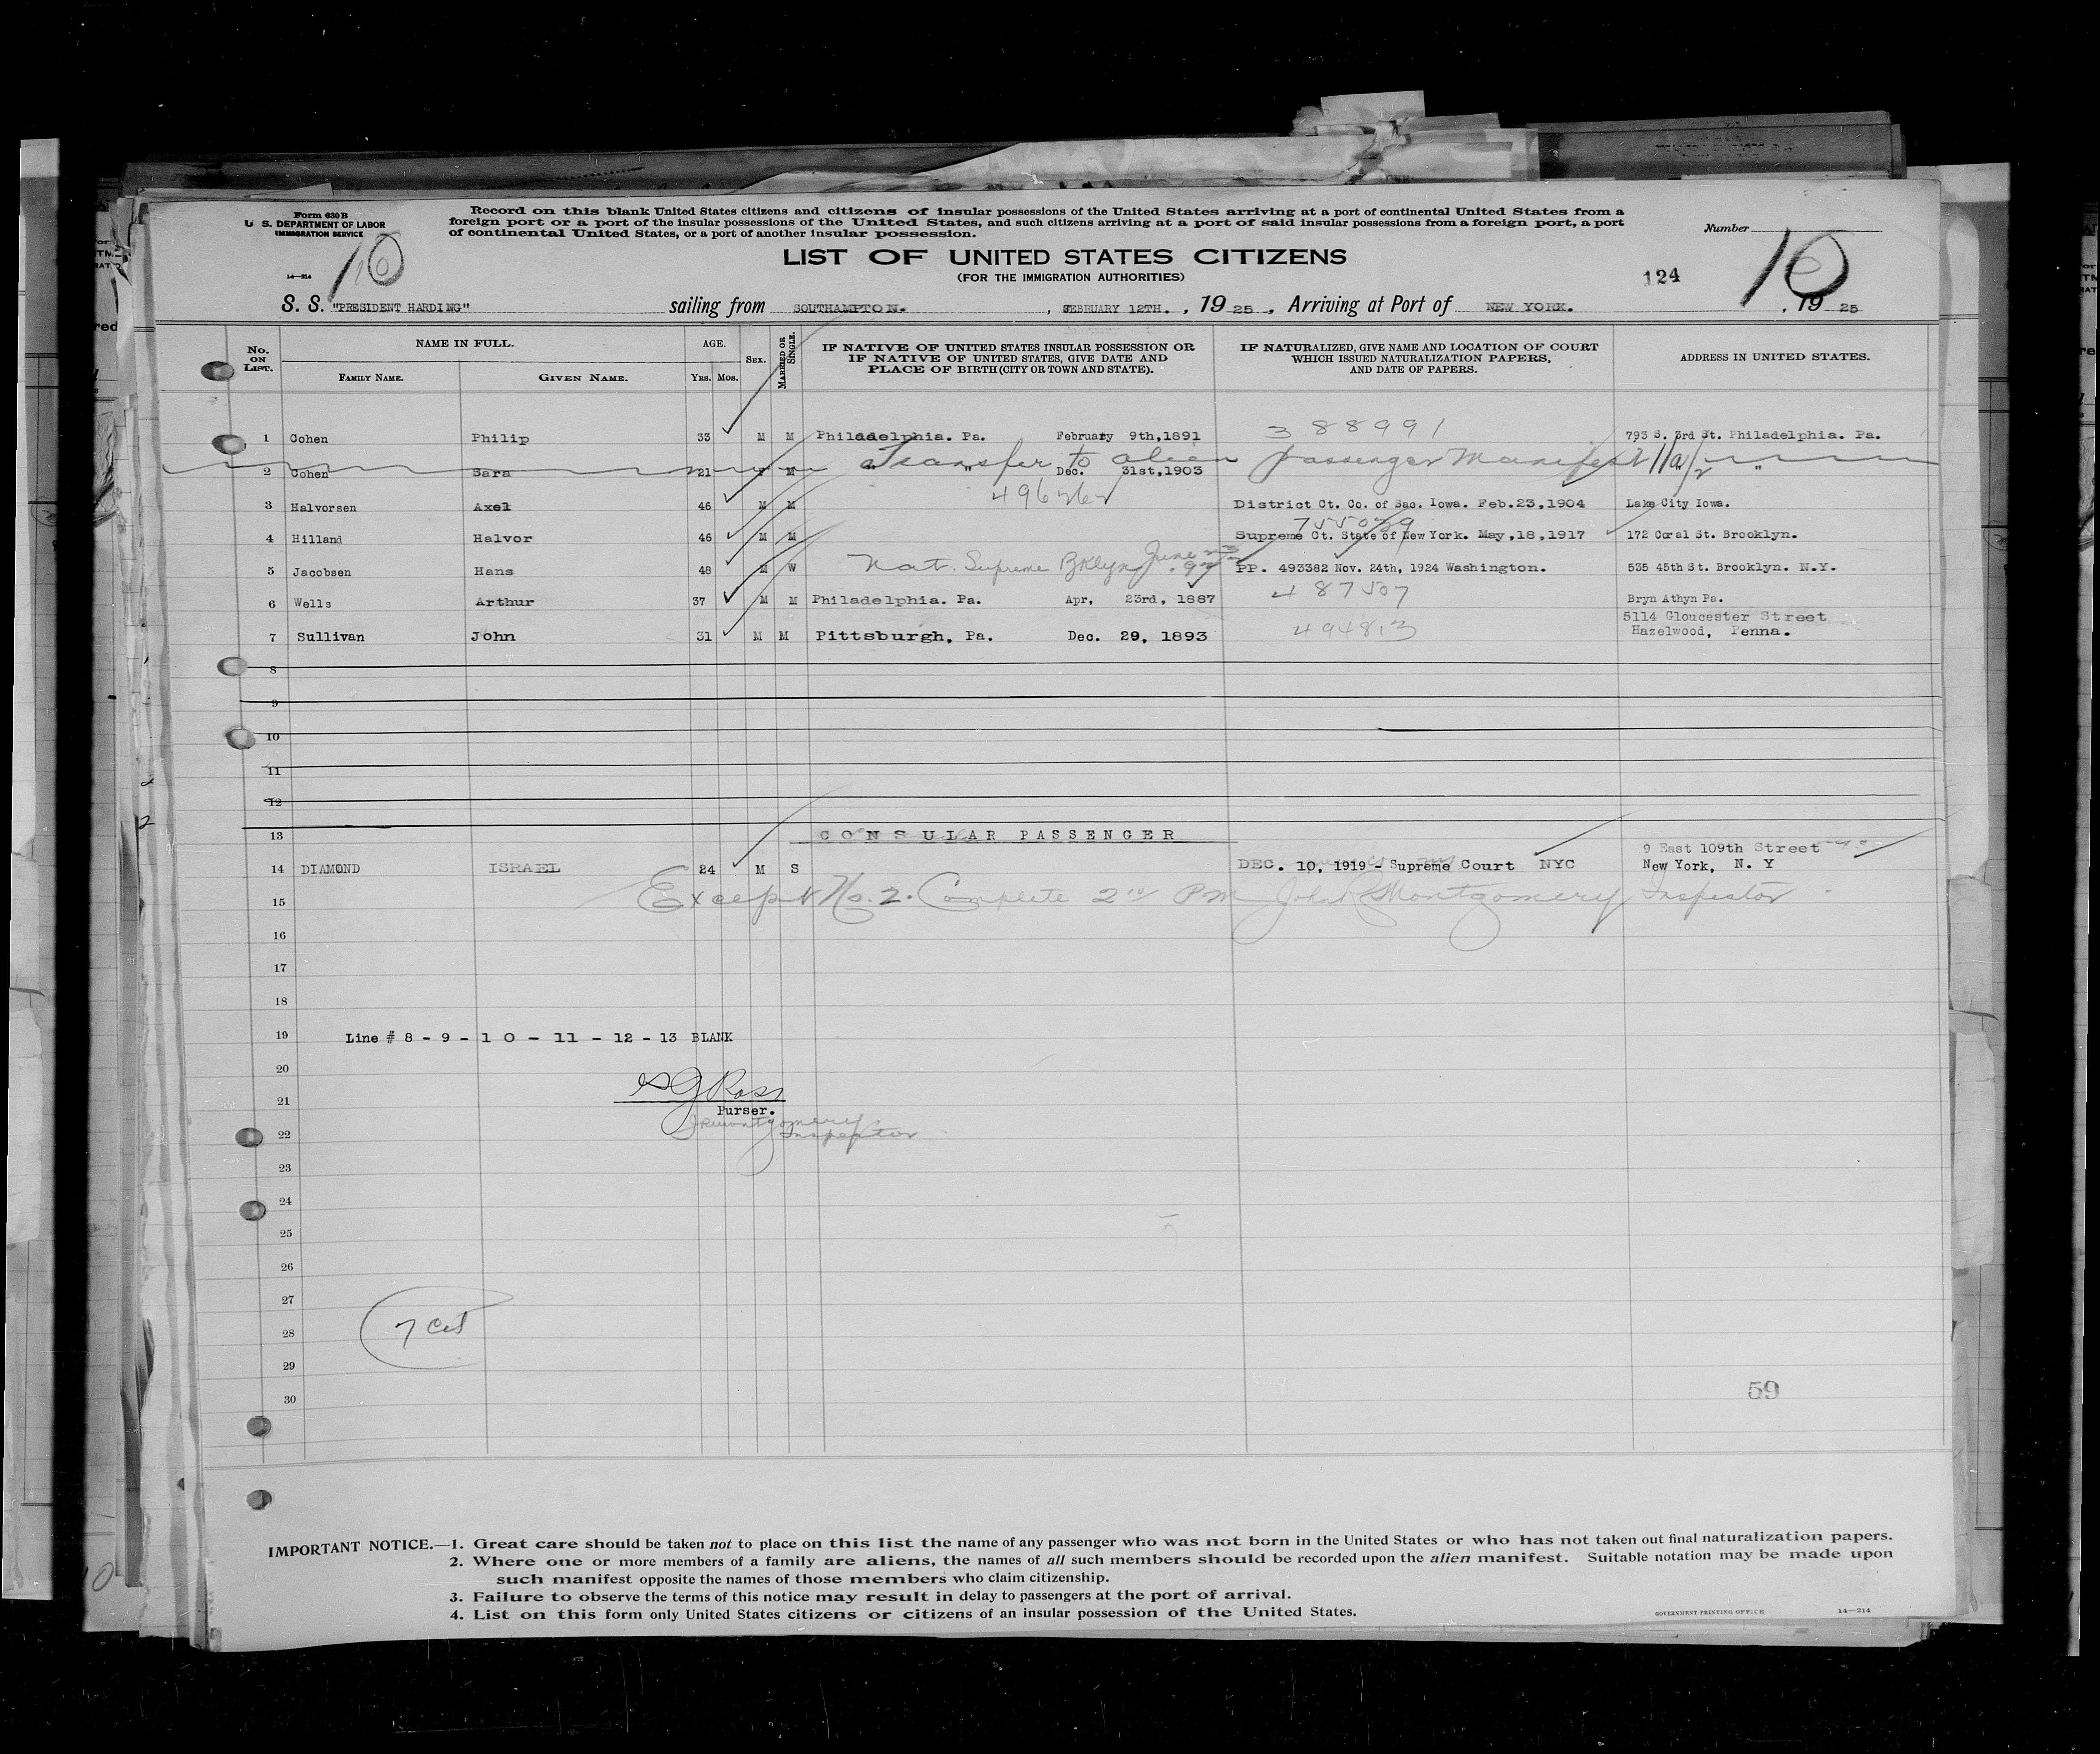 Form 630 B
U. S. DEPARTMENT OF LABOR
IMMIGRATION SERVICE
14—214
10
Record on this blank United States citizens and citizens of insular possessions of the United States arriving at a port of continental United States from a
foreign port or a port of the insular possessions of the United States, and such citizens arriving at a port of said insular possessions from a foreign port, a port
of continental United States, or a port of another insular possession.
Number
LIST OF UNITED STATES CITIZENS
(FOR THE IMMIGRATION AUTHORITIES)
124
10
S. S. "PRESIDENT HARDING" sailing from SOUTHAMPTON. , FEBRUARY 12TH. , 19 25 , Arriving at Port of NEW YORK. , 19 25
No. ON LIST. NAME IN FULL. FAMILY NAME. GIVEN NAME. AGE. YRS. MOS. SEX. MARRIED OR SINGLE. IF NATIVE OF UNITED STATES INSULAR POSSESSION OR IF NATIVE OF UNITED STATES, GIVE DATE AND PLACE OF BIRTH (CITY OR TOWN AND STATE). IF NATURALIZED, GIVE NAME AND LOCATION OF COURT WHICH ISSUED NATURALIZATION PAPERS, AND DATE OF PAPERS. ADDRESS IN UNITED STATES.
1 Cohen Philip 33 M M Philadelphia. Pa. February 9th,1891 388991 793 S. 3rd St. Philadelphia. Pa.
Transfer to alien passenger Manifest 11a/2
2 Cohen Sara 21 F M " " Dec. 31st,1903 "
3 Halvorsen Axel 46 M M District Ct. Co. of Sac. Iowa. Feb.23,1904 Lake City Iowa.
755039
4 Hilland Halvor 46 M M Supreme Ct. State of New York. May,18,1917 172 Coral St. Brooklyn.
5 Jacobsen Hans 48 M W Nat. Supreme Bklyn June PP. 493382 Nov. 24th, 1924 Washington. 535 45th St. Brooklyn. N.Y.
6 Wells Arthur 37 M M Philadelphia. Pa. Apr, 23rd, 1887 487507 Bryn Athyn Pa.
5114 Gloucester Street
7 Sullivan John 31 M M Pittsburgh, Pa. Dec. 29, 1893 494813 Hazelwood, Penna.
8
9
10
11
12
13 CONSULAR PASSENGER
9 East 109th Street
14 DIAMOND ISRAEL 24 M S DEC. 10, 1919 - Supreme Court NYC New York, N. Y
15 Except No. 2. Complete 2nd PM John Montgomery Inspector
16
17
18
19 Line # 8 - 9 - 10 - 11 - 12 - 13 BLANK
20
21 Ross
Purser.
22 Montgomery
Inspector
23
24
25
26
27
28 7 Cit
29
30
59
IMPORTANT NOTICE.—1. Great care should be taken not to place on this list the name of any passenger who was not born in the United States or who has not taken out final naturalization papers.
2. Where one or more members of a family are aliens, the names of all such members should be recorded upon the alien manifest. Suitable notation may be made upon
such manifest opposite the names of those members who claim citizenship.
3. Failure to observe the terms of this notice may result in delay to passengers at the port of arrival.
4. List on this form only United States citizens or citizens of an insular possession of the United States.
GOVERNMENT PRINTING OFFICE 14—214